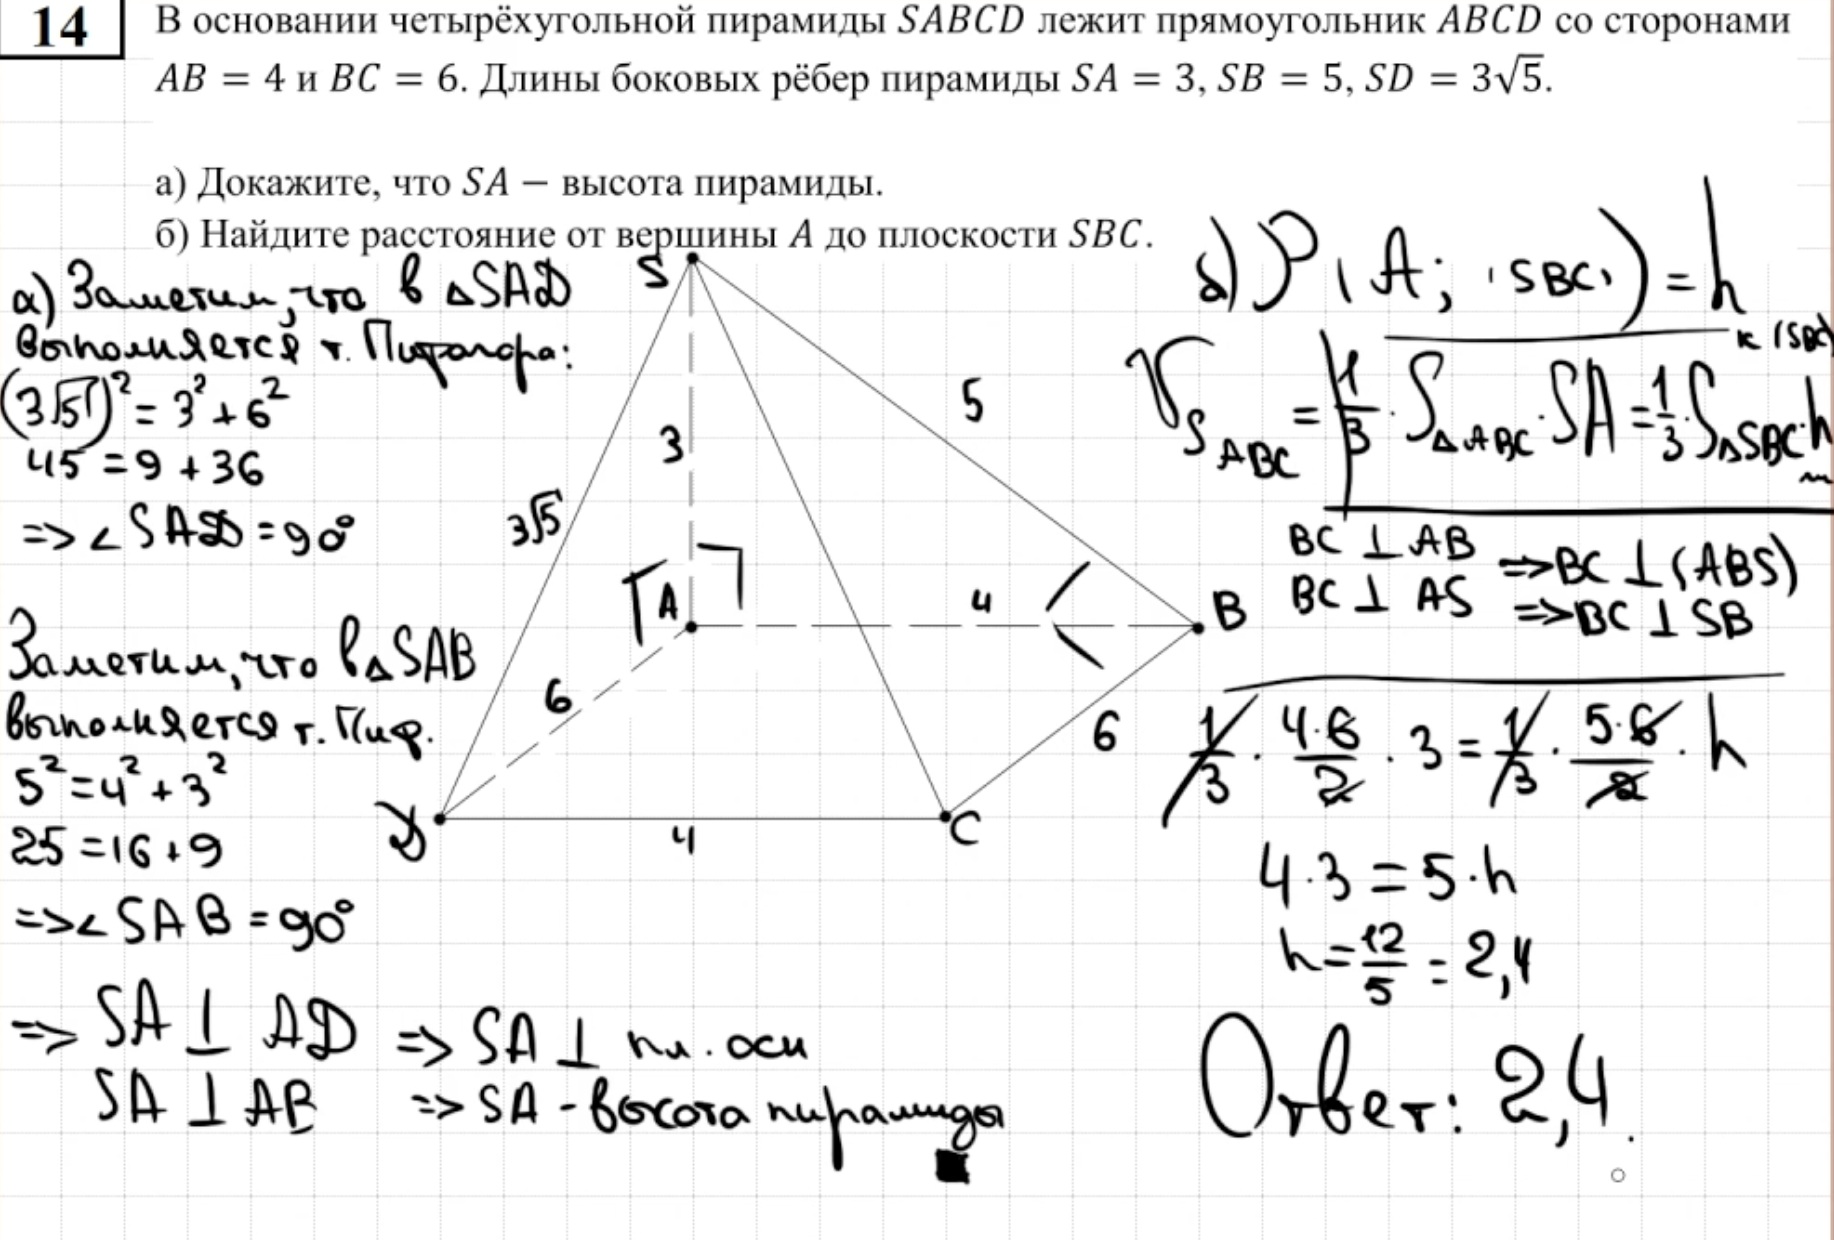 14
В основании четырёхугольной пирамиды SABCD лежит прямоугольник ABCD со сторонами
AB = 4 и BC = 6. Длины боковых рёбер пирамиды SA = 3, SB = 5, SD = 3√5.
а) Докажите, что SA − высота пирамиды.
б) Найдите расстояние от вершины A до плоскости SBC.
а) Заметим, что в △SAD
выполняется т. Пифагора:
(3√5)² = 3² + 6²
45 = 9 + 36
=> ∠SAD = 90°
Заметим, что в △SAB
выполняется т. Пиф.
5² = 4² + 3²
25 = 16 + 9
=> ∠SAB = 90°
=> SA ⊥ AD => SA ⊥ пл. осн
SA ⊥ AB => SA - высота пирамиды
S
3√5
3
5
A
4
B
6
6
D
4
C
б) ρ(A; (SBC)) = h
к (SBC)
V SABC = 1/3 · S△ABC · SA = 1/3 · S△SBC · h
BC ⊥ AB => BC ⊥ (ABS)
BC ⊥ AS => BC ⊥ SB
1/3 · 4·6/2 · 3 = 1/3 · 5·6/2 · h
4·3 = 5·h
h = 12/5 = 2,4
Ответ: 2,4.